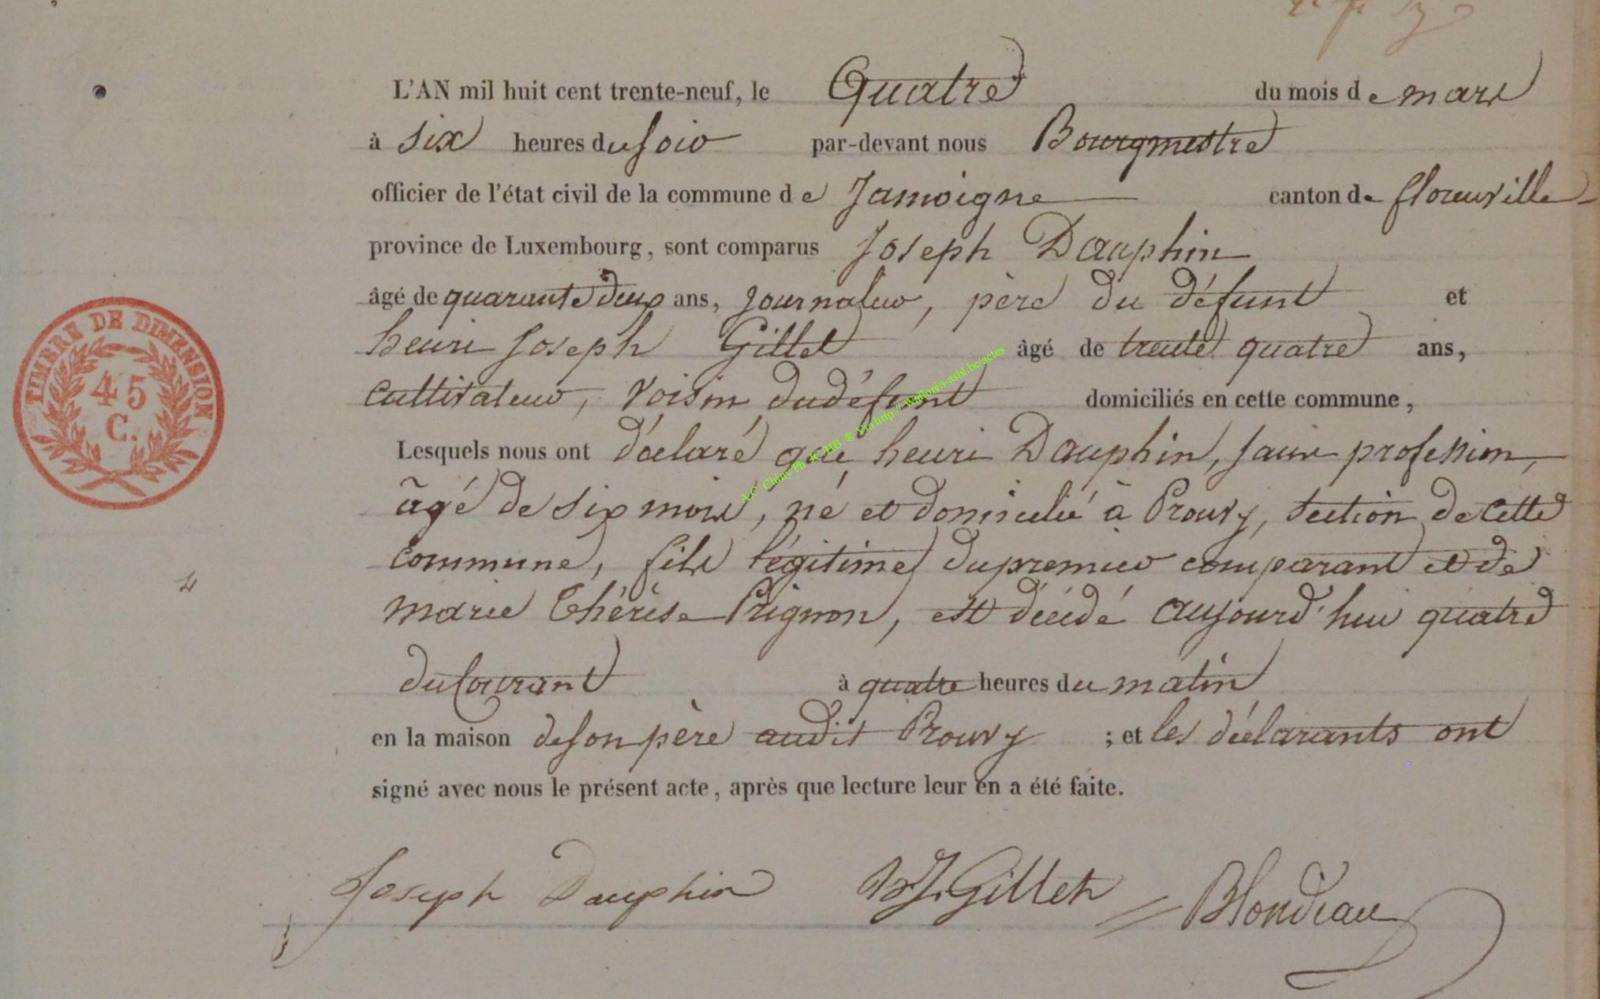 L'AN mil huit cent trente-neuf, le Quatre du mois de mars
à six heures du soir par-devant nous Bourgmestre
officier de l'état civil de la commune de Jamoigne canton de florenville
province de Luxembourg, sont comparus Joseph Dauphin
âgé de quarante deux ans, journalier, père du défunt et
henri Joseph Gillet âgé de trente quatre ans,
cultivateur, voisin du défunt domiciliés en cette commune,
Lesquels nous ont déclaré que henri Dauphin, sans profession,
âgé de six mois, né et domicilié à Prouvy, section de cette
commune, fils légitime du premier comparant et de
marie thérèse Prignon, est décédé aujourd'hui quatre
du Courant à quatre heures du matin
en la maison de son père audit Prouvy ; et les déclarants ont
signé avec nous le présent acte, après que lecture leur en a été faite.
Joseph Dauphin hJ. Gillet Blondiau
TIMBRE DE DIMENSION
45
C.